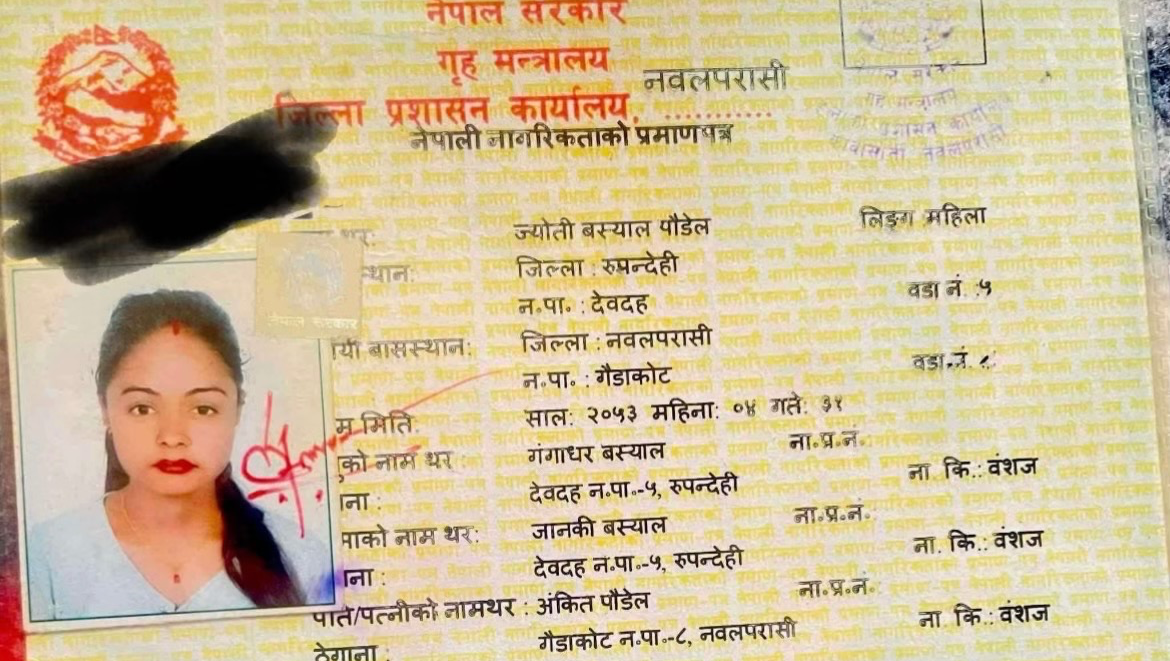 नेपाल सरकार
गृह मन्त्रालय
जिल्ला प्रशासन कार्यालय, नवलपरासी
नेपाली नागरिकताको प्रमाणपत्र
थर: ज्योती बस्याल पौडेल लिङ्ग महिला
स्थान: जिल्ला : रुपन्देही
न.पा. : देवदह वडा नं. :५
यी बासस्थान: जिल्ला : नवलपरासी
न.पा. : गैडाकोट वडा नं.
म मिति: साल: २०५३ महिना: ०४ गते: ३१
को नाम थर : गंगाधर बस्याल ना.प्र.नं.
ना : देवदह न.पा.-५, रुपन्देही ना कि.: वंशज
माको नाम थर: जानकी बस्याल ना.प्र.नं.
ना : देवदह न.पा.-५, रुपन्देही ना. कि.: वंशज
पति/पत्नीको नामथर : अंकित पौडेल ना.प्र.नं.
ठेगाना गैडाकोट न.पा.-८, नवलपरासी ना कि.: वंशज